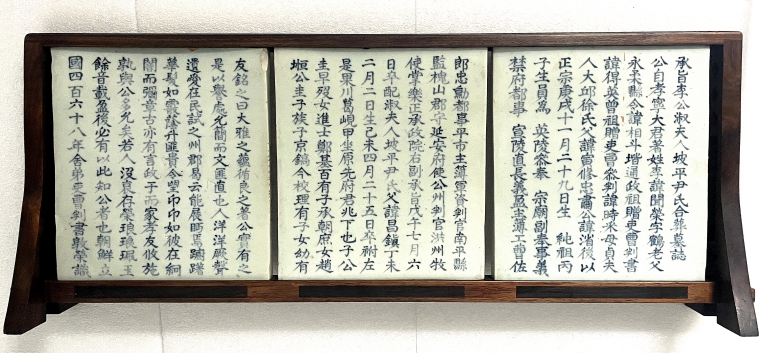 承旨李公淑夫人坡平尹氏合葬墓誌
公自孝寧大君著姓李諱開榮字鶴老父
永柔縣令諱相斗堦通政祖贈吏曹判書
諱得英曾祖贈吏曹參判諱時采母貞夫
人大邱徐氏父諱當修忠肅公諱渻後以
正宗庚戌十一月二十九日生 純祖丙
子生員爲 英陵參奉 宗廟副奉事義
禁府都事 宣陵直長義盈主簿工曹佐
郎忠勳都事平市主簿軍資判官南平縣
監槐山郡守延安府使公州判官洪州牧
使掌樂正承政院右副承旨戊午七月六
日卒配淑夫人坡平尹氏父諱昌鎭丁未
二月二日生己未四月二十五日卒祔左
是果川葛峴甲坐原先府君兆下也子公
圭早歿女進士鄭基百有子承朝庶女趙
垣公圭子族子京鎬今校理有子女幼有
友銘之曰大雅之蘊循良之著公實有之
是以譽處允簡而文匪直也人洋洋厥聲
遺愛在民試之州郡易云能展焉
華髮如蔭升匪貴令望卬卬如彼在絅
闇而彌章古亦有言政于而家孝友攸施
孰與公多允矣若人沒良存榮琅琅珮玉
餘音載盈後必有以此知公者也朝鮮立
國四百六十八年舍弟吏曹判書敦榮識